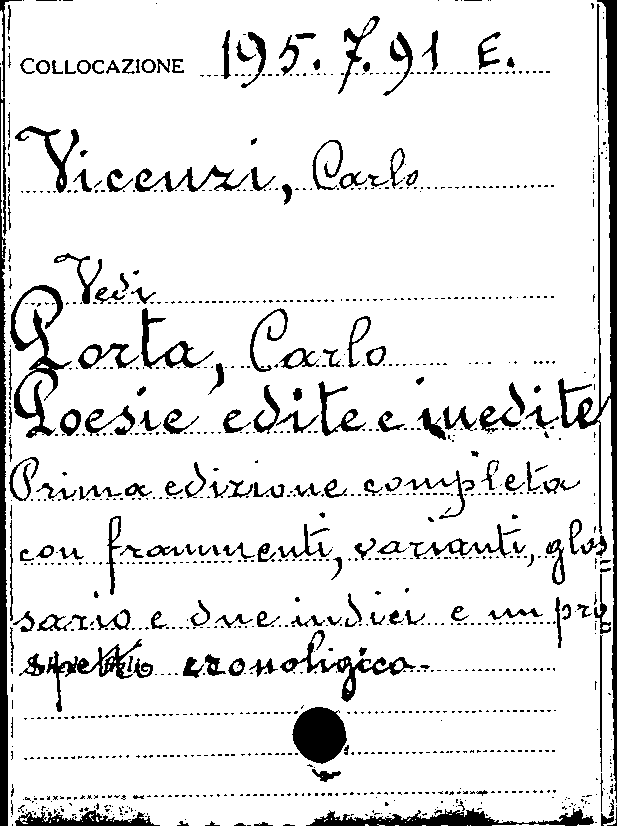 COLLOCAZIONE 195.7.91 E.
Vicenzi, Carlo
Vedi
Porta, Carlo
Poesie edite e inedite
Prima edizione completa
con frammenti, varianti, glos=
sario e due indici e un pro=
spetto cronoligico.